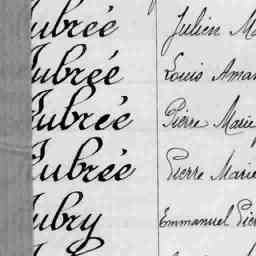 Aubrée Julien
Aubrée Louis
Aubrée Pierre Marie
Aubrée Pierre Marie
Aubry Emmanuel